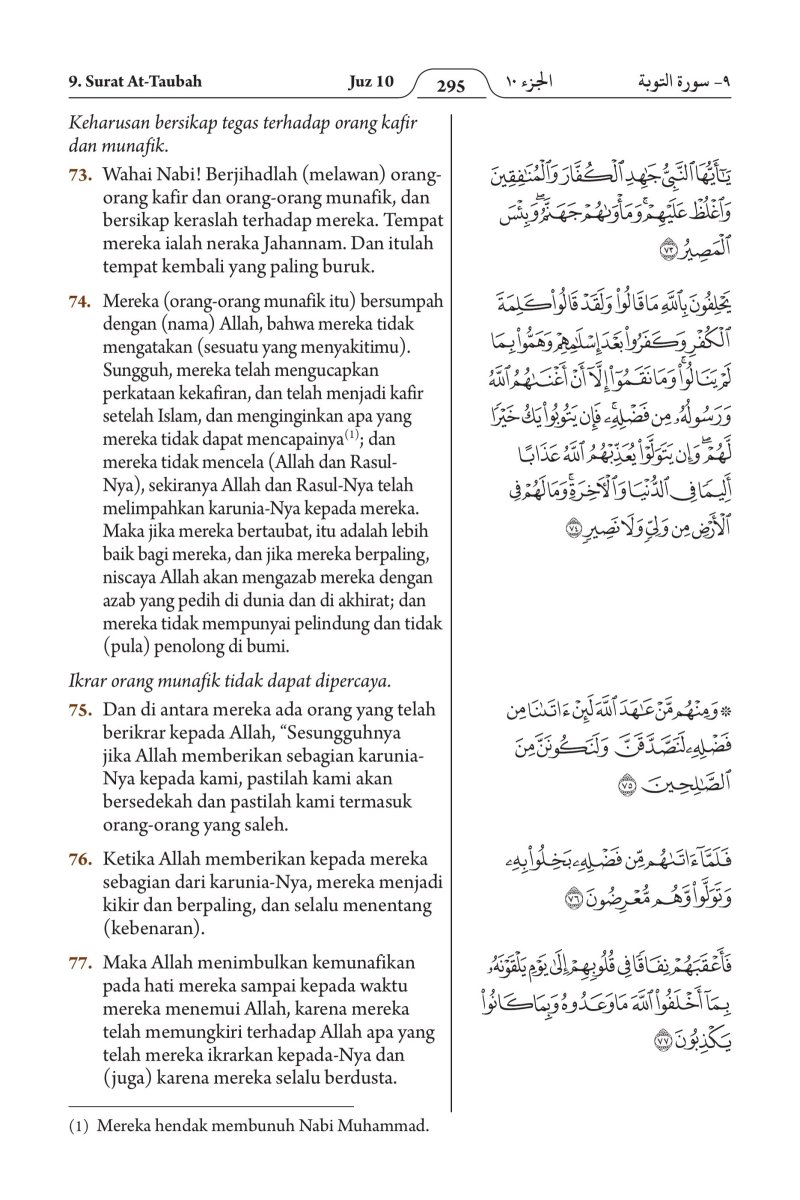 9. Surat At-Taubah
Juz 10
295
الجزء ١٠
٩- سورة التوبة
Keharusan bersikap tegas terhadap orang kafir
dan munafik.
73. Wahai Nabi! Berjihadlah (melawan) orang-
orang kafir dan orang-orang munafik, dan
bersikap keraslah terhadap mereka. Tempat
mereka ialah neraka Jahannam. Dan itulah
tempat kembali yang paling buruk.
يَٰٓأَيُّهَا ٱلنَّبِيُّ جَٰهِدِ ٱلْكُفَّارَ وَٱلْمُنَٰفِقِينَ
وَٱغْلُظْ عَلَيْهِمْ ۚ وَمَأْوَىٰهُمْ جَهَنَّمُ ۖ وَبِئْسَ
ٱلْمَصِيرُ ٧٣
74. Mereka (orang-orang munafik itu) bersumpah
dengan (nama) Allah, bahwa mereka tidak
mengatakan (sesuatu yang menyakitimu).
Sungguh, mereka telah mengucapkan
perkataan kekafiran, dan telah menjadi kafir
setelah Islam, dan menginginkan apa yang
mereka tidak dapat mencapainya(1); dan
mereka tidak mencela (Allah dan Rasul-
Nya), sekiranya Allah dan Rasul-Nya telah
melimpahkan karunia-Nya kepada mereka.
Maka jika mereka bertaubat, itu adalah lebih
baik bagi mereka, dan jika mereka berpaling,
niscaya Allah akan mengazab mereka dengan
azab yang pedih di dunia dan di akhirat; dan
mereka tidak mempunyai pelindung dan tidak
(pula) penolong di bumi.
يَحْلِفُونَ بِٱللَّهِ مَا قَالُوا۟ وَلَقَدْ قَالُوا۟ كَلِمَةَ
ٱلْكُفْرِ وَكَفَرُوا۟ بَعْدَ إِسْلَٰمِهِمْ وَهَمُّوا۟ بِمَا
لَمْ يَنَالُوا۟ ۚ وَمَا نَقَمُوٓا۟ إِلَّآ أَنْ أَغْنَىٰهُمُ ٱللَّهُ
وَرَسُولُهُۥ مِن فَضْلِهِۦ ۚ فَإِن يَتُوبُوا۟ يَكُ خَيْرًا
لَّهُمْ ۖ وَإِن يَتَوَلَّوْا۟ يُعَذِّبْهُمُ ٱللَّهُ عَذَابًا
أَلِيمًا فِى ٱلدُّنْيَا وَٱلْءَاخِرَةِ ۚ وَمَا لَهُمْ فِى
ٱلْأَرْضِ مِن وَلِىٍّ وَلَا نَصِيرٍ ٧٤
Ikrar orang munafik tidak dapat dipercaya.
75. Dan di antara mereka ada orang yang telah
berikrar kepada Allah, “Sesungguhnya
jika Allah memberikan sebagian karunia-
Nya kepada kami, pastilah kami akan
bersedekah dan pastilah kami termasuk
orang-orang yang saleh.
۞ وَمِنْهُم مَّنْ عَٰهَدَ ٱللَّهَ لَئِنْ ءَاتَىٰنَا مِن
فَضْلِهِۦ لَنَصَّدَّقَنَّ وَلَنَكُونَنَّ مِنَ
ٱلصَّٰلِحِينَ ٧٥
76. Ketika Allah memberikan kepada mereka
sebagian dari karunia-Nya, mereka menjadi
kikir dan berpaling, dan selalu menentang
(kebenaran).
فَلَمَّآ ءَاتَىٰهُم مِّن فَضْلِهِۦ بَخِلُوا۟ بِهِۦ
وَتَوَلَّوا۟ وَّهُم مُّعْرِضُونَ ٧٦
77. Maka Allah menimbulkan kemunafikan
pada hati mereka sampai kepada waktu
mereka menemui Allah, karena mereka
telah memungkiri terhadap Allah apa yang
telah mereka ikrarkan kepada-Nya dan
(juga) karena mereka selalu berdusta.
فَأَعْقَبَهُمْ نِفَاقًا فِى قُلُوبِهِمْ إِلَىٰ يَوْمِ يَلْقَوْنَهُۥ
بِمَآ أَخْلَفُوا۟ ٱللَّهَ مَا وَعَدُوهُ وَبِمَا كَانُوا۟
يَكْذِبُونَ ٧٧
(1) Mereka hendak membunuh Nabi Muhammad.